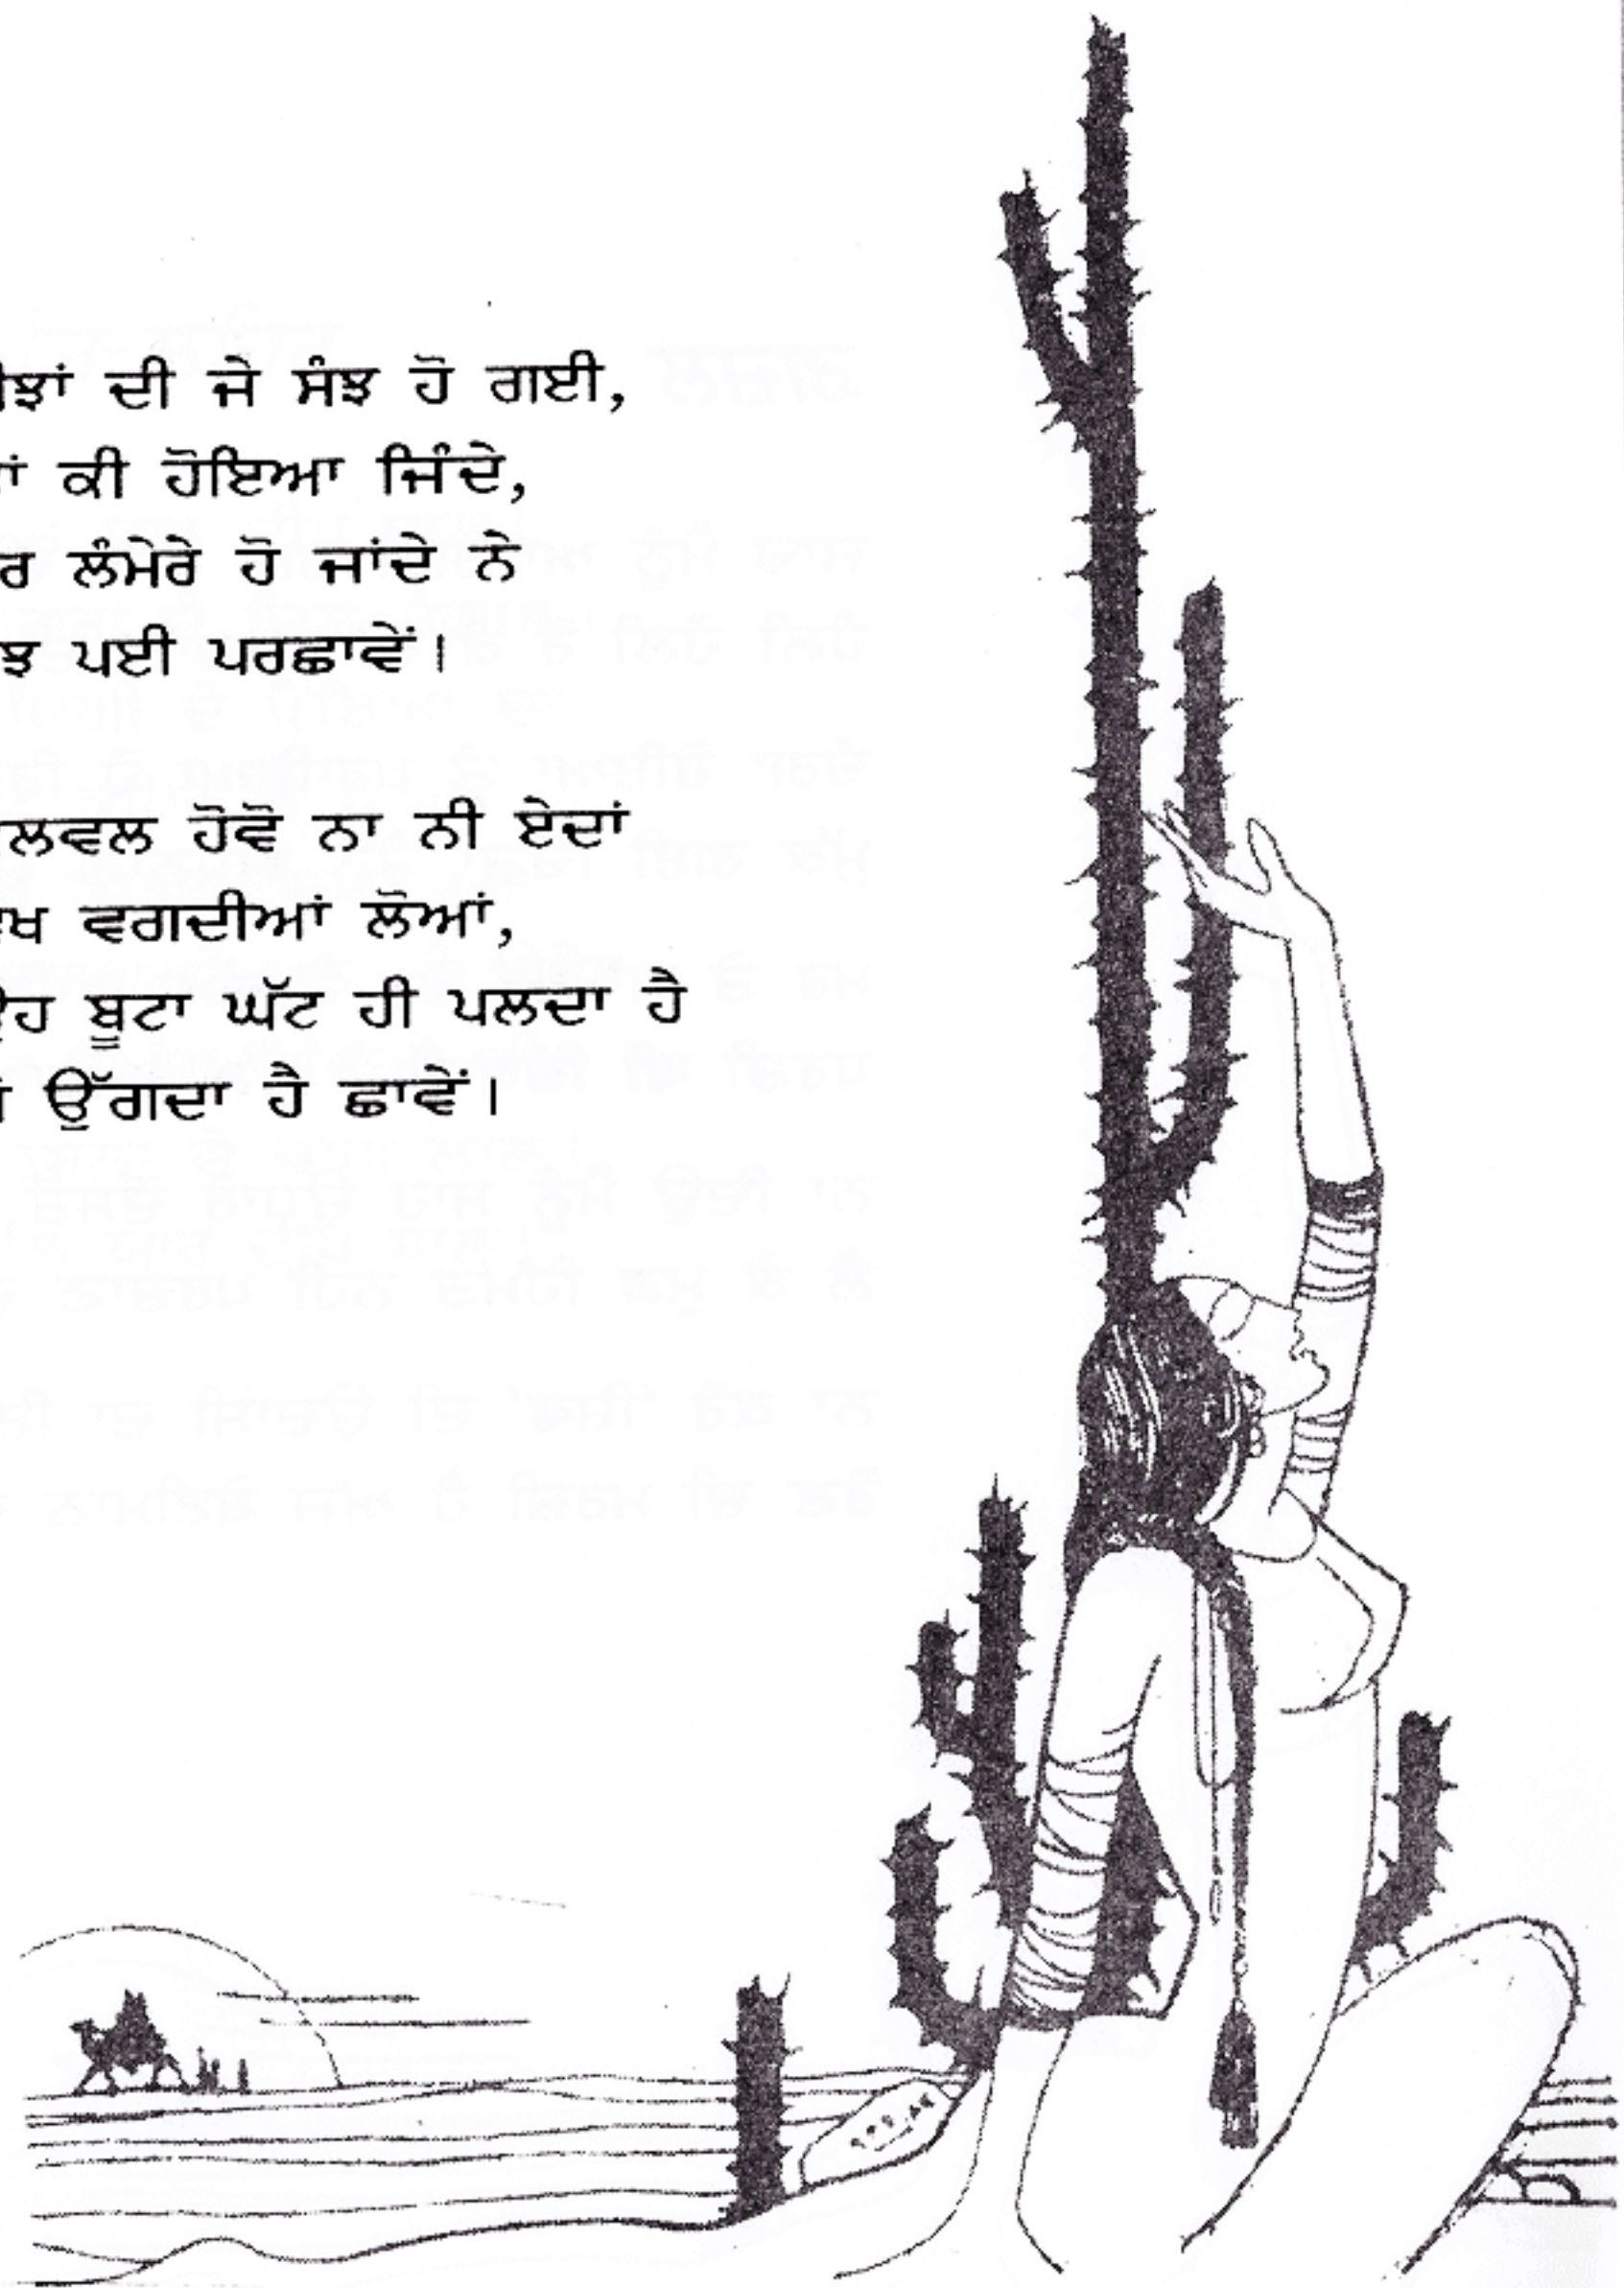 ਝਾਂ ਦੀ ਜੇ ਸੰਝ ਹੋ ਗਈ,
ਕੀ ਹੋਇਆ ਜਿੰਦੇ,
ਰ ਲੰਮੇਰੇ ਹੋ ਜਾਂਦੇ ਨੇ
ਝ ਪਈ ਪਰਛਾਵੇਂ।
ਲਵਲ ਹੋਵੋ ਨਾ ਨੀ ਏਦਾਂ
ਖ ਵਗਦੀਆਂ ਲੋਆਂ,
ਬੂਟਾ ਘੱਟ ਹੀ ਪਲਦਾ ਹੈ
ਉੱਗਦਾ ਹੈ ਛਾਵੇਂ।